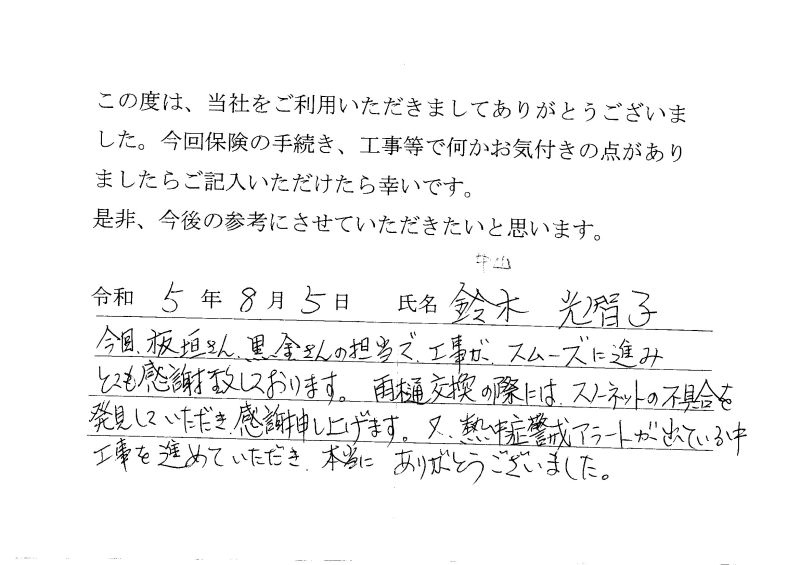 この度は、当社をご利用いただきましてありがとうございま
した。今回保険の手続き、工事等で何かお気付きの点があり
ましたらご記入いただけたら幸いです。
是非、今後の参考にさせていただきたいと思います。
中山
令和 5 年 8 月 5 日 氏名 鈴木 光智子
今回、板垣さん、黒金さんの担当で、工事が、スムーズに進み
とても感謝致しております。雨樋交換の際には、スノーネットの不具合を
発見していただき、感謝申し上げます。又、熱中症警戒アラートが出ている中
工事を進めていただき、本当に ありがとうございました。